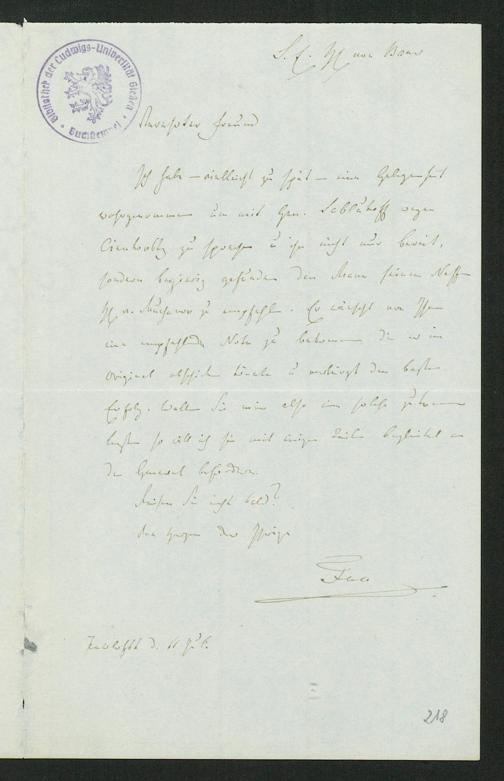 Bibliothek der Ludwigs-Universität Giessen
Buchstempel
S. E. H von Baer
Verehrter Freund
Ich habe – vielleicht zu spät – eine Gelegenheit
wahrgenommen um mit Gen. Schlühoff wegen
zu sprechen u ihn nicht nur bereit,
sondern begierig gefunden den Mann seinem Neffen
H. v. zu empfehlen. Er wünscht von Ihnen
eine empfehlende Note zu bekommen die er im
Original abschicken könnte u verbürgt den besten
Erfolg. Wollen Sie mir also eine solche zukommen
lassen so will ich sie mit einigen Zeilen begleitet an
den General befördern.
Reisen Sie nicht bald?
Von Herzen der Ihrige
d. 11 Jul.
218